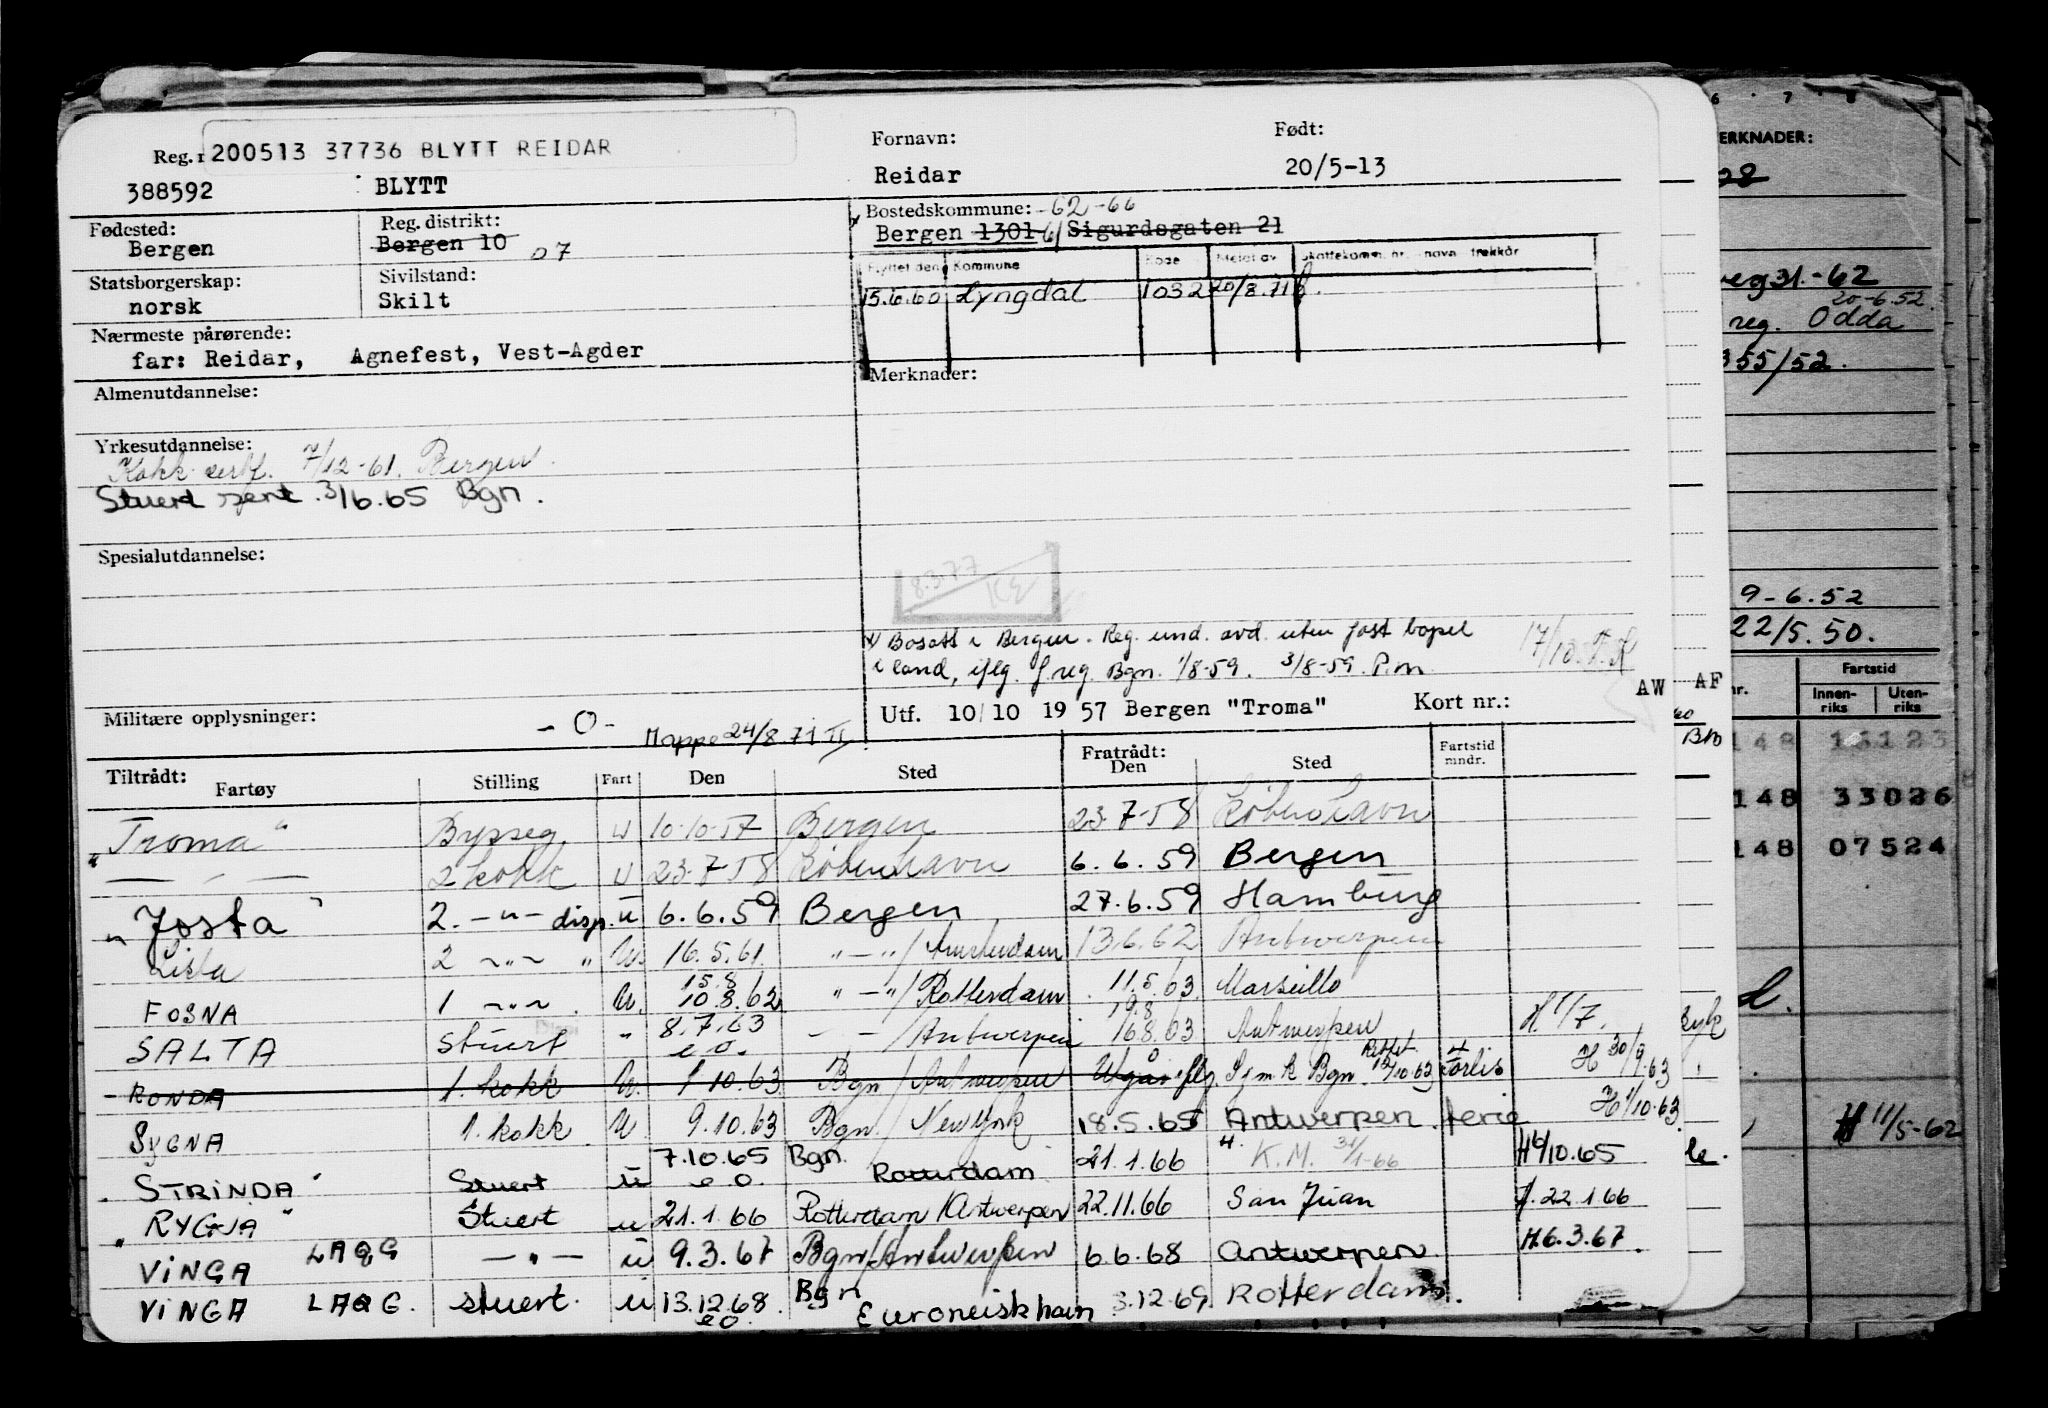 Reg.n 200513 37736 BLYTT REIDAR
Fornavn: Født:
388592 BLYTT Reidar 20/5-13
Fødested: Reg. distrikt: Bostedskommune: 62-66
Bergen Bergen 10 07 Bergen 1301 61 Sigurdsgaten 21
Statsborgerskap: Sivilstand:
norsk Skilt
Flyttet den Kommune Kode Meldt av Skattekomm. nr. - navn trekkår
15.6.60 Lyngdal 1032 20/8.71
Nærmeste pårørende:
far: Reidar, Agnefest, Vest-Agder
Almenutdannelse: Merknader:
Yrkesutdannelse:
Kokk sertf. 7/12-61. Bergen.
Stuert sert. 3/6.65 Bgn.
Spesialutdannelse:
8.3.77 KE
x/ Bosatt i Bergen. Reg. und. avd. uten fast bopel
i land, iflg. f. reg. Bgn. 1/8-59. 3/8-59. P.m.
17/10. F.K
AW AF
Militære opplysninger: -0- Mappe 24/8.71 II
Utf. 10/10 1957 Bergen "Troma" Kort nr.:
Tiltrådt: Fartøy Stilling Fart Den Sted Fratrådt: Den Sted Fartstid mndr.
"Troma" Bysseg. U 10-10-57 Bergen 23-7-58 København
— " — 2 kokk U 23-7-58 København 6.6.59 Bergen
"Josta" 2. -"- disp. u 6.6.59 Bergen 27.6.59 Hamburg
Lista 2 -"- " U. 16.5.61. "-"/Amsterdam 13.6.62 Antwerpen
FOSNA 1 -"- U. 15.8 10.8.62 "-"/Rotterdam 11.5.63 Marseille
SALTA stuert " 8.7.63 e.o. - - /Antwerpen 19.8 16.8.63 Antwerpen H 1/7.
RONDA 1. kokk U. 1.10.63 Bgn/Antwerpen Utgår iflg. Sjm.k Bgn. Rettet 12/10.63 Forlis H 30/9.63
SYGNA 1. kokk U. 9.10.63 Bgn./New York 18.5.65 Antwerpen. ferie H 1/10.63
"STRINDA" Stuert u 7.10.65 e.o. Bgn. Rotterdam 21.1.66 K.M. 31/1-66 H 6/10.65
"RYGJA" Stuert u 21.1.66 Rotterdam/Antwerpen 22.11.66 San Juan H. 22.1.66
VINGA LAQG — " — u 9.3.67 Bgn/Antwerpen 6.6.68 Antwerpen. H.6.3.67.
VINGA LAQG. stuert. u 13.12.68. e.o. Bgn Euroneiskhavn 3.12.69 Rotterdam.
ERKNADER:
28
veg 31.-62
20-6.52
reg. Odda
355/52.
9-6.52
22/5.50.
nr. Fartstid
Innen-riks Uten-riks
148 16123
148 33026
148 07524
H 11/5-62